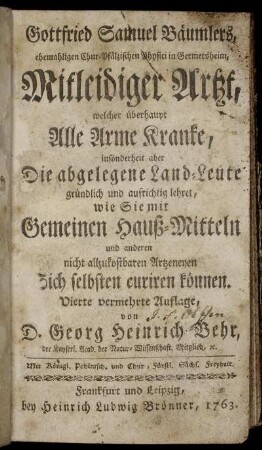 Gottfried Samuel Bäumlers,
ehemahligen Chur-Pfältzischen Physici in Germersheim,
Mitleidiger Artzt,
welcher überhaupt
Alle Arme Kranke,
insonderheit aber
Die abgelegene Land-Leute
gründlich und aufrichtig lehret,
wie Sie mit
Gemeinen Hauß-Mitteln
und anderen
nicht allzukostbaren Artzeneyen
Sich selbsten curiren können.
Vierte vermehrte Auflage,
von
D. Georg Heinrich Behr,
der Kayserl. Acad. der Natur-Wissenschaft. Mitglied, ꝛc.
Mit Königl. Pohlnisch. und Chur-Fürstl. Sächs. Freyheit.
Frankfurt und Leipzig,
bey Heinrich Ludwig Brönner, 1763.